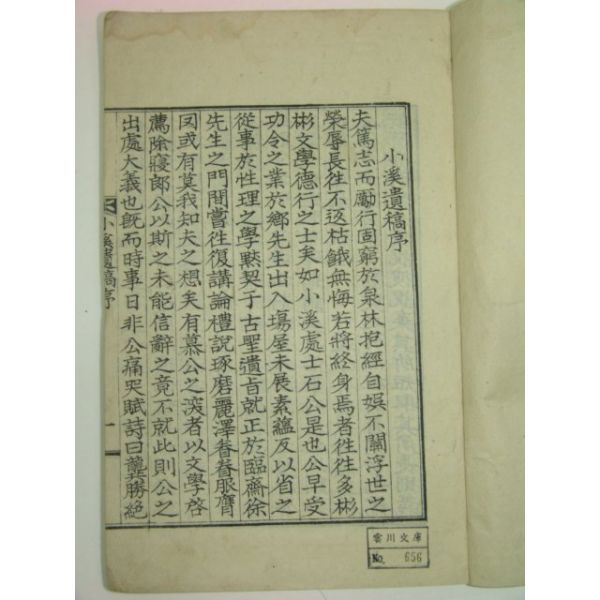 小溪遺稿序
夫篤志而勵行固窮於泉林抱經自娛不關浮世之
榮辱長往不返枯餓無悔若將終身焉者往往多彬
彬文學德行之士矣如小溪處士石公是也公早受
功令之業於鄉先生出入場屋未展素蘊反以省之
從事於性理之學默契于古聖遺旨就正於臨齋徐
先生之門間嘗往復講論禮說琢磨麗澤眷眷服膺
因或有莫我知夫之想矣有慕公之深者以文學啓
薦除寢郞公以斯之未能信辭之竟不就此則公之
出處大義也旣而時事日非公痛哭賦詩曰龔勝絕
小溪遺稿序
一
雲川文庫
No. 656